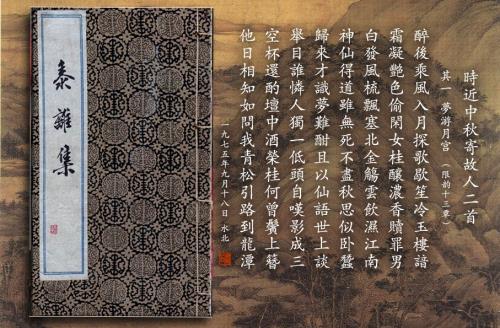 時近中秋寄故人二首
其一 夢游月宮 (限韵十三覃)
醉後乘風入月探歌歇笙冷玉樓諳
霜凝艷色偷閑女桂釀濃香贖罪男
白發風梳飄塞北金觴雲飲濕江南
神仙得道雖無死不盡秋思似卧蠶
歸來才識夢難酣且以仙語世上談
舉目誰憐人獨一低頭自嘆影成三
空杯還酌壇中酒榮桂何曾鬢上簪
他日相知如問我青松引路到龍潭
一九七五年九月十八日 水北
黍離集